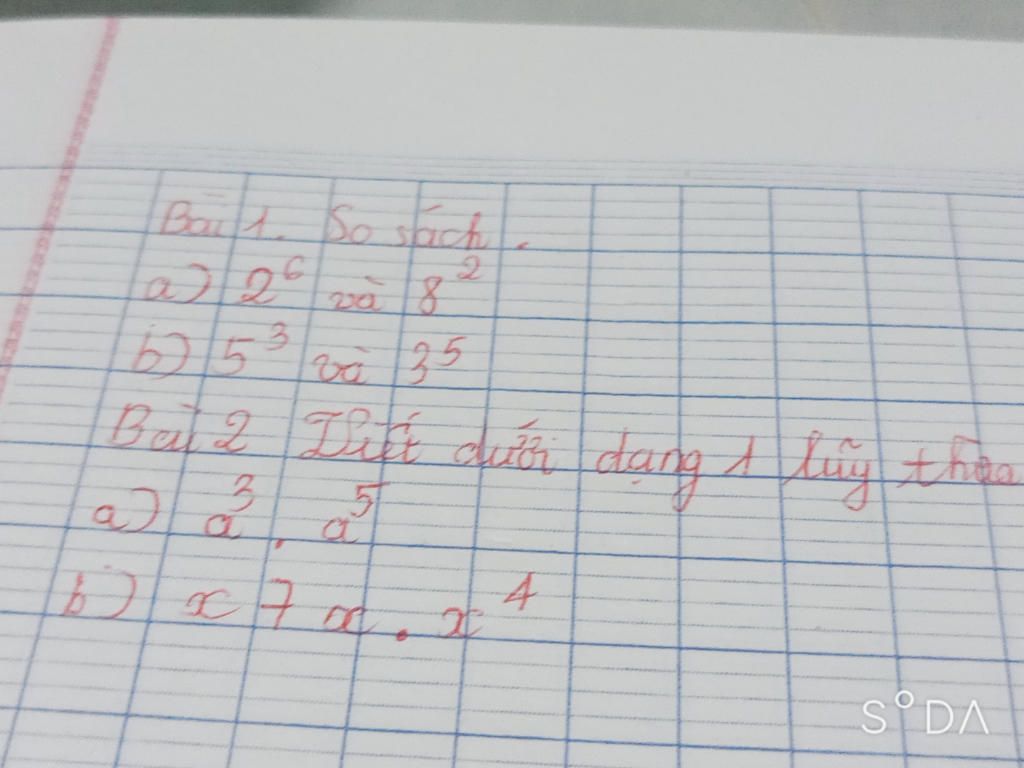 Bài 1. So sách.
a) 2⁶ và 8²
b) 5³ và 3⁵
Bài 2 Viết dưới dạng 1 lũy thừa
a) a³ . a⁵
b) x 7 x . x⁴
SODA